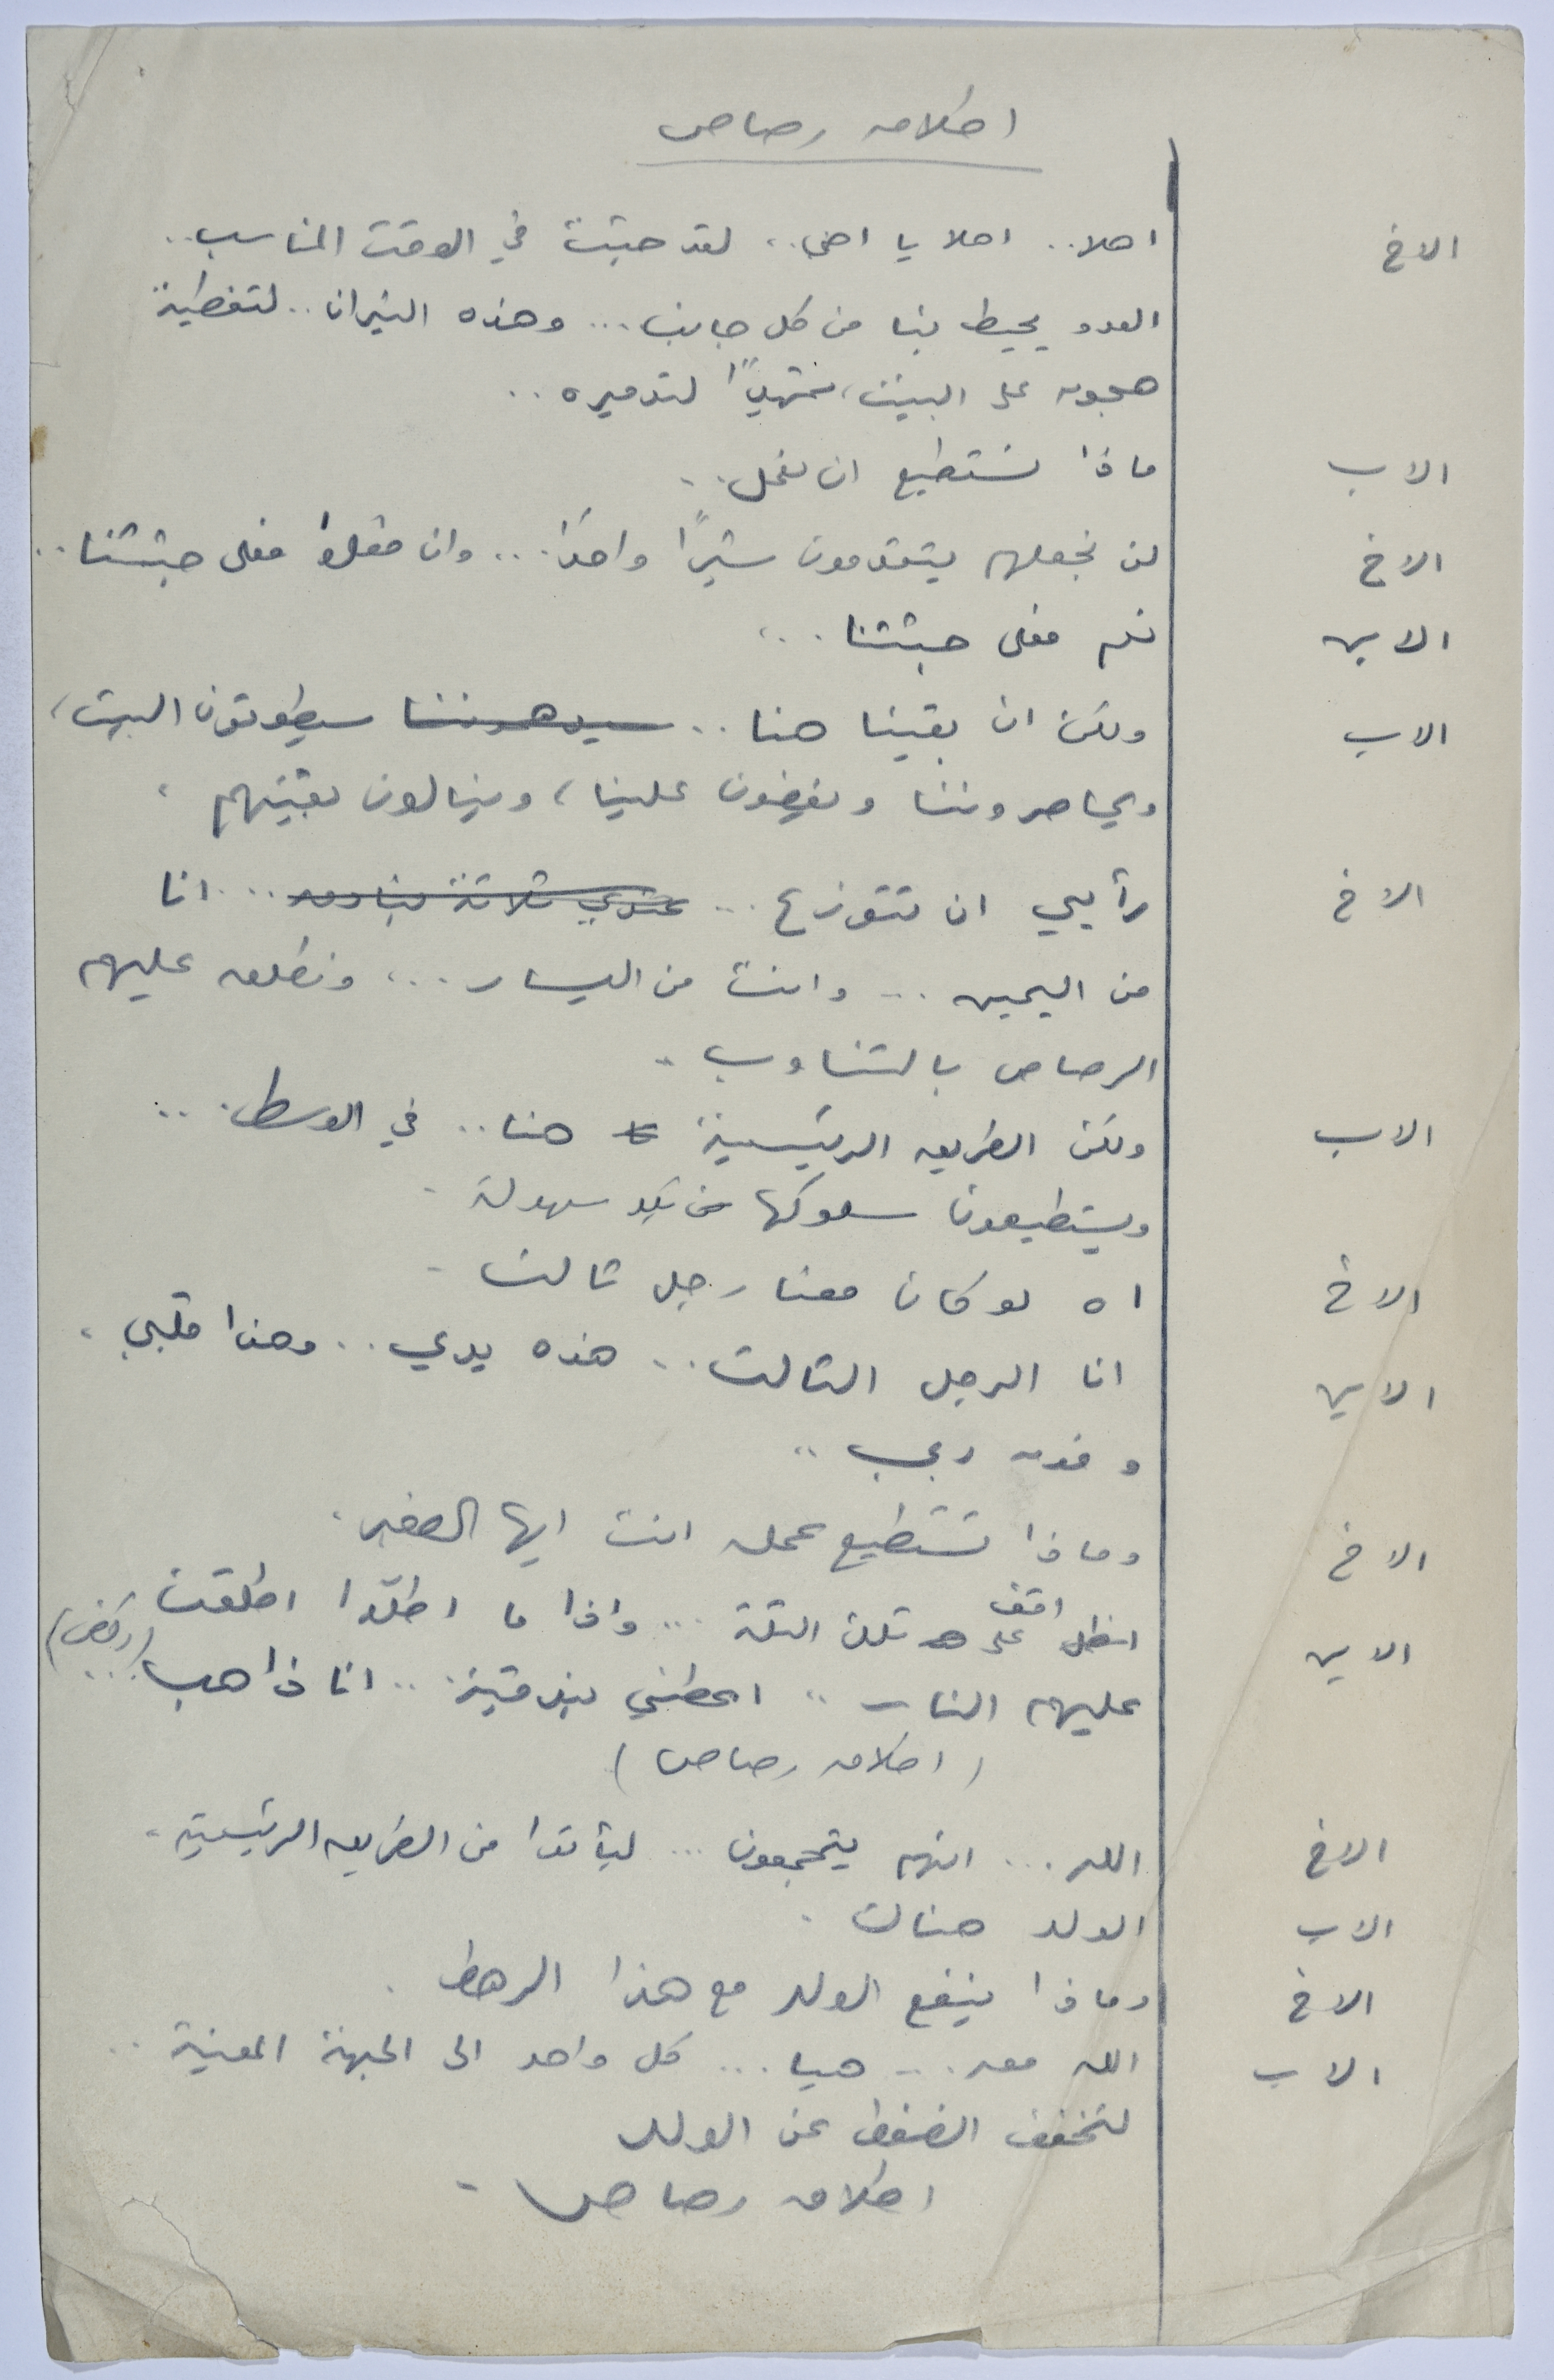 اطلاق رصاص
الاخ اهلا .. اهلا يا اخي .. لقد جئت في الوقت المناسب ..
العدو يحيط بنا من كل جانب ... وهذه النيران .. لتغطية
هجومه على البيت، تمهيدًا لتدميره ..
الاب ماذا نستطيع ان نفعل ..
الاخ لن نجعلهم يتقدمون شبرًا واحدًا ... وان فعلوا فعلى جثثنا ..
الابن نعم فعلى جثثنا ...
الاب ولكن ان بقينا هنا .. سيطوقون البيت،
ويحاصروننا ويقبضون علينا، وينالون بغيتهم .
الاخ رأيي ان نتوزع ... عندي ثلاثة بنادق ... انا
من اليمين ... وانت من اليسار ... ونطلق عليهم
الرصاص بالتناوب .
الاب ولكن الطريق الرئيسية هنا .. في الوسط ...
ويستطيعون سلوكها من بكل سهولة .
الاخ اه لو كان معنا رجل ثالث .
الابن انا الرجل الثالث .. هذه يدي .. وهذا قلبي .
وفوقه ربي ..
الاخ وماذا تستطيع عمله انت ايها الصغير .
الابن اقف على تلك التلة ... واذا ما اطلّوا اطلقت
عليهم النار .. اعطني بندقية .. انا ذاهب (ركض)
(اطلاق رصاص)
الاخ الله ... انهم يتجمعون ... ليأتوا من الطريق الرئيسية .
الاب الولد هناك .
الاخ وماذا ينفع الولد مع هذا الرهط .
الاب الله معه ... هيا ... كل واحد الى الجبهة المعنية ..
لتخفف الضغط عن الولد
اطلاق رصاص -